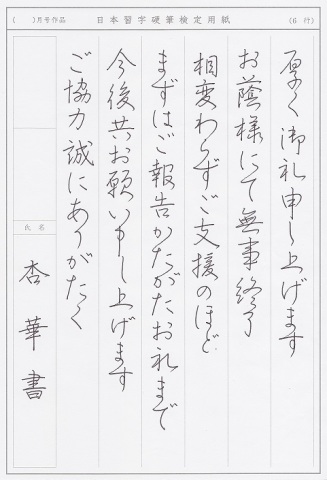 (　)月号作品　日本習字硬筆検定用紙　(6 行)
ご協力誠にありがたく
厚く御礼申し上げます
お蔭様にて無事終了
相変わらずご支援のほど
今後共お願い申し上げます
まずはご報告かたがたお礼まで
氏名
杏華書